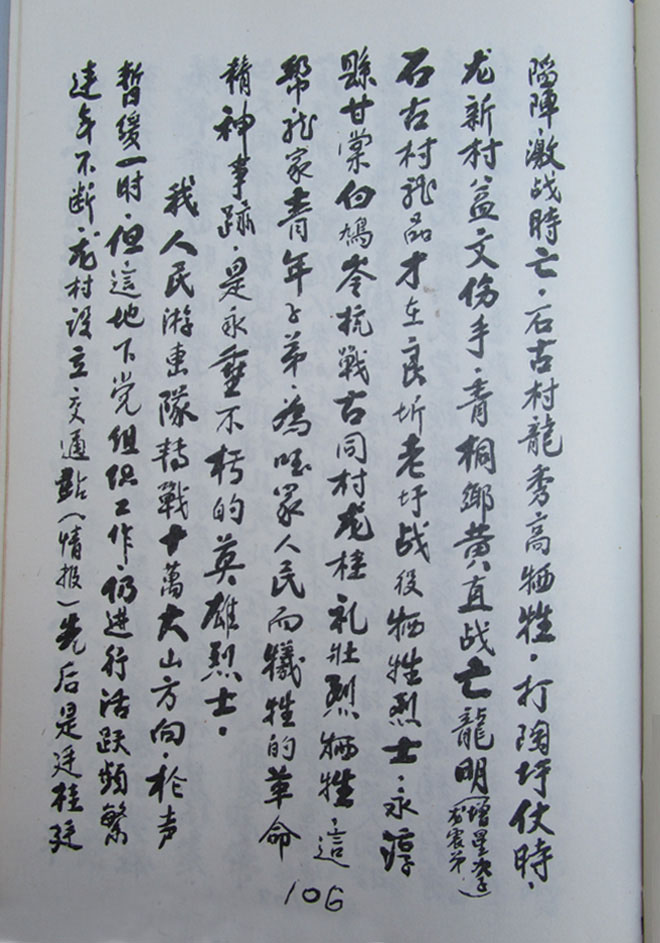 陷陣激战時亡．石古村龍秀高牺牲．打陶圩仗時．
龙新村益文伤手．青桐鄉黄直战亡龍明（增星次子龙震弟）
石古村龍品才在良圻老圩战役牺牲烈士．永淳
縣甘棠白鳩岺抗戰古同村龙桂礼壮烈牺牲．這
帮龍家青年子弟．為国家人民而犧牲的革命
精神事蹟．是永垂不朽的英雄烈士．
我人民游击隊轉戰十萬大山方向．枪声
暂缓一时．但這地下党组织工作．仍进行活跃頻繁
连年不断．龙村设立交通點（情报）先后是廷桂廷
106